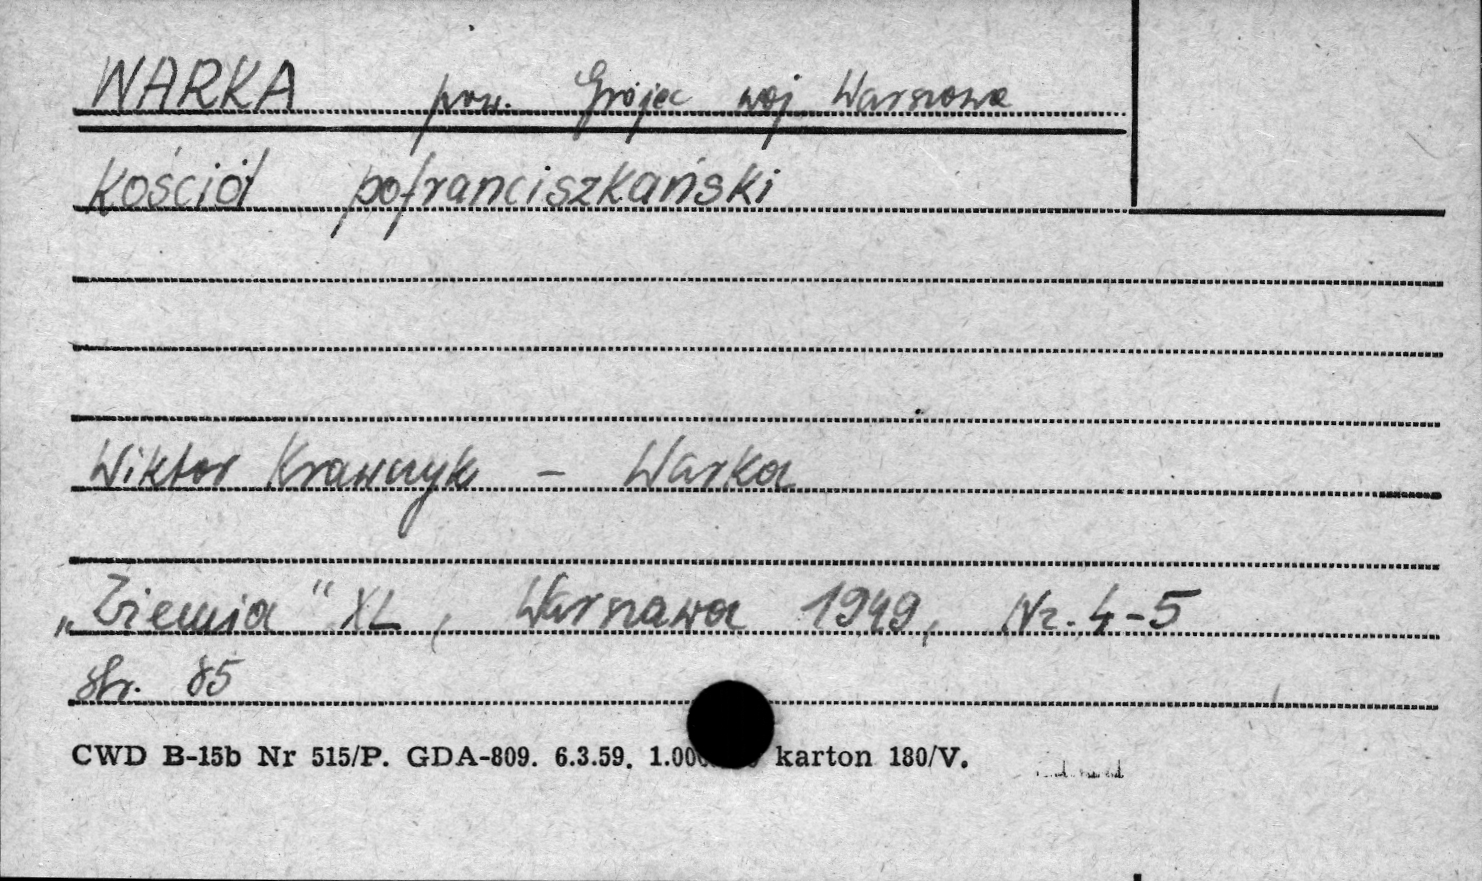 WARKA pow. Grójec woj Warszawa
Kościół pofranciszkański
Wiktor Krawczyk - Warka
„Ziemia" XL, Warszawa 1949, Nr. 4-5
str. 85
CWD B-15b Nr 515/P. GDA-809. 6.3.59. karton 180/V.